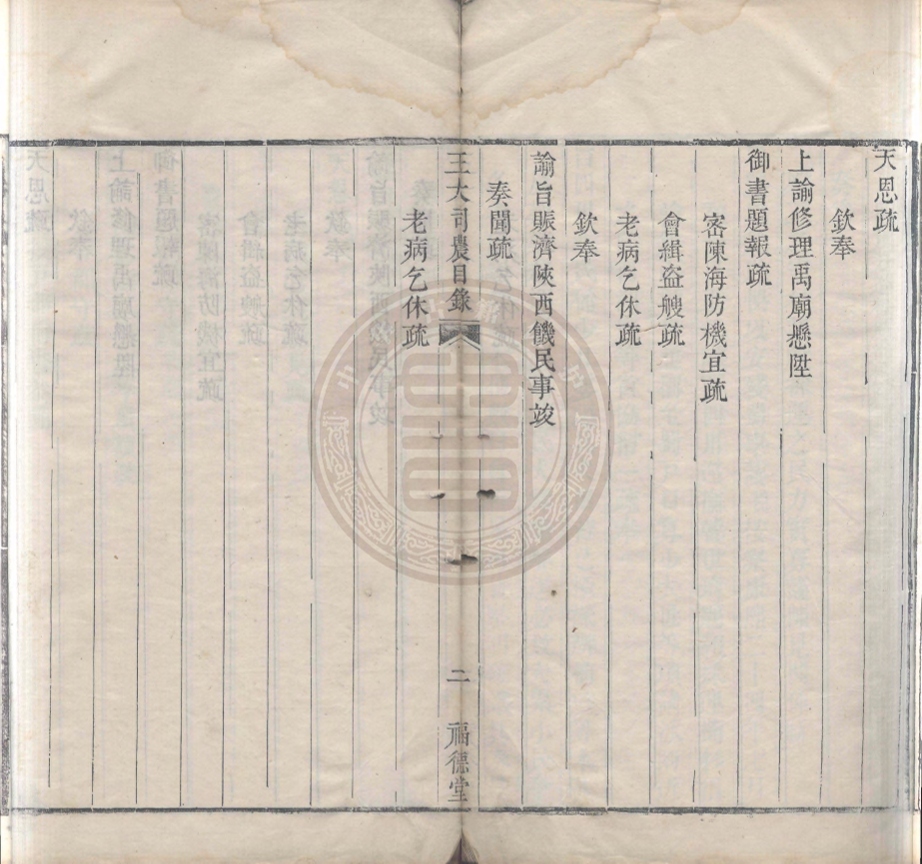 天恩疏
欽奉
上諭修理禹廟懸陞
御書題報疏
密陳海防機宜疏
會緝盗艘疏
老病乞休疏
欽奉
諭旨賑濟陝西饑民事竣
奏聞疏
王大司農目錄
二
福德堂
老病乞休疏